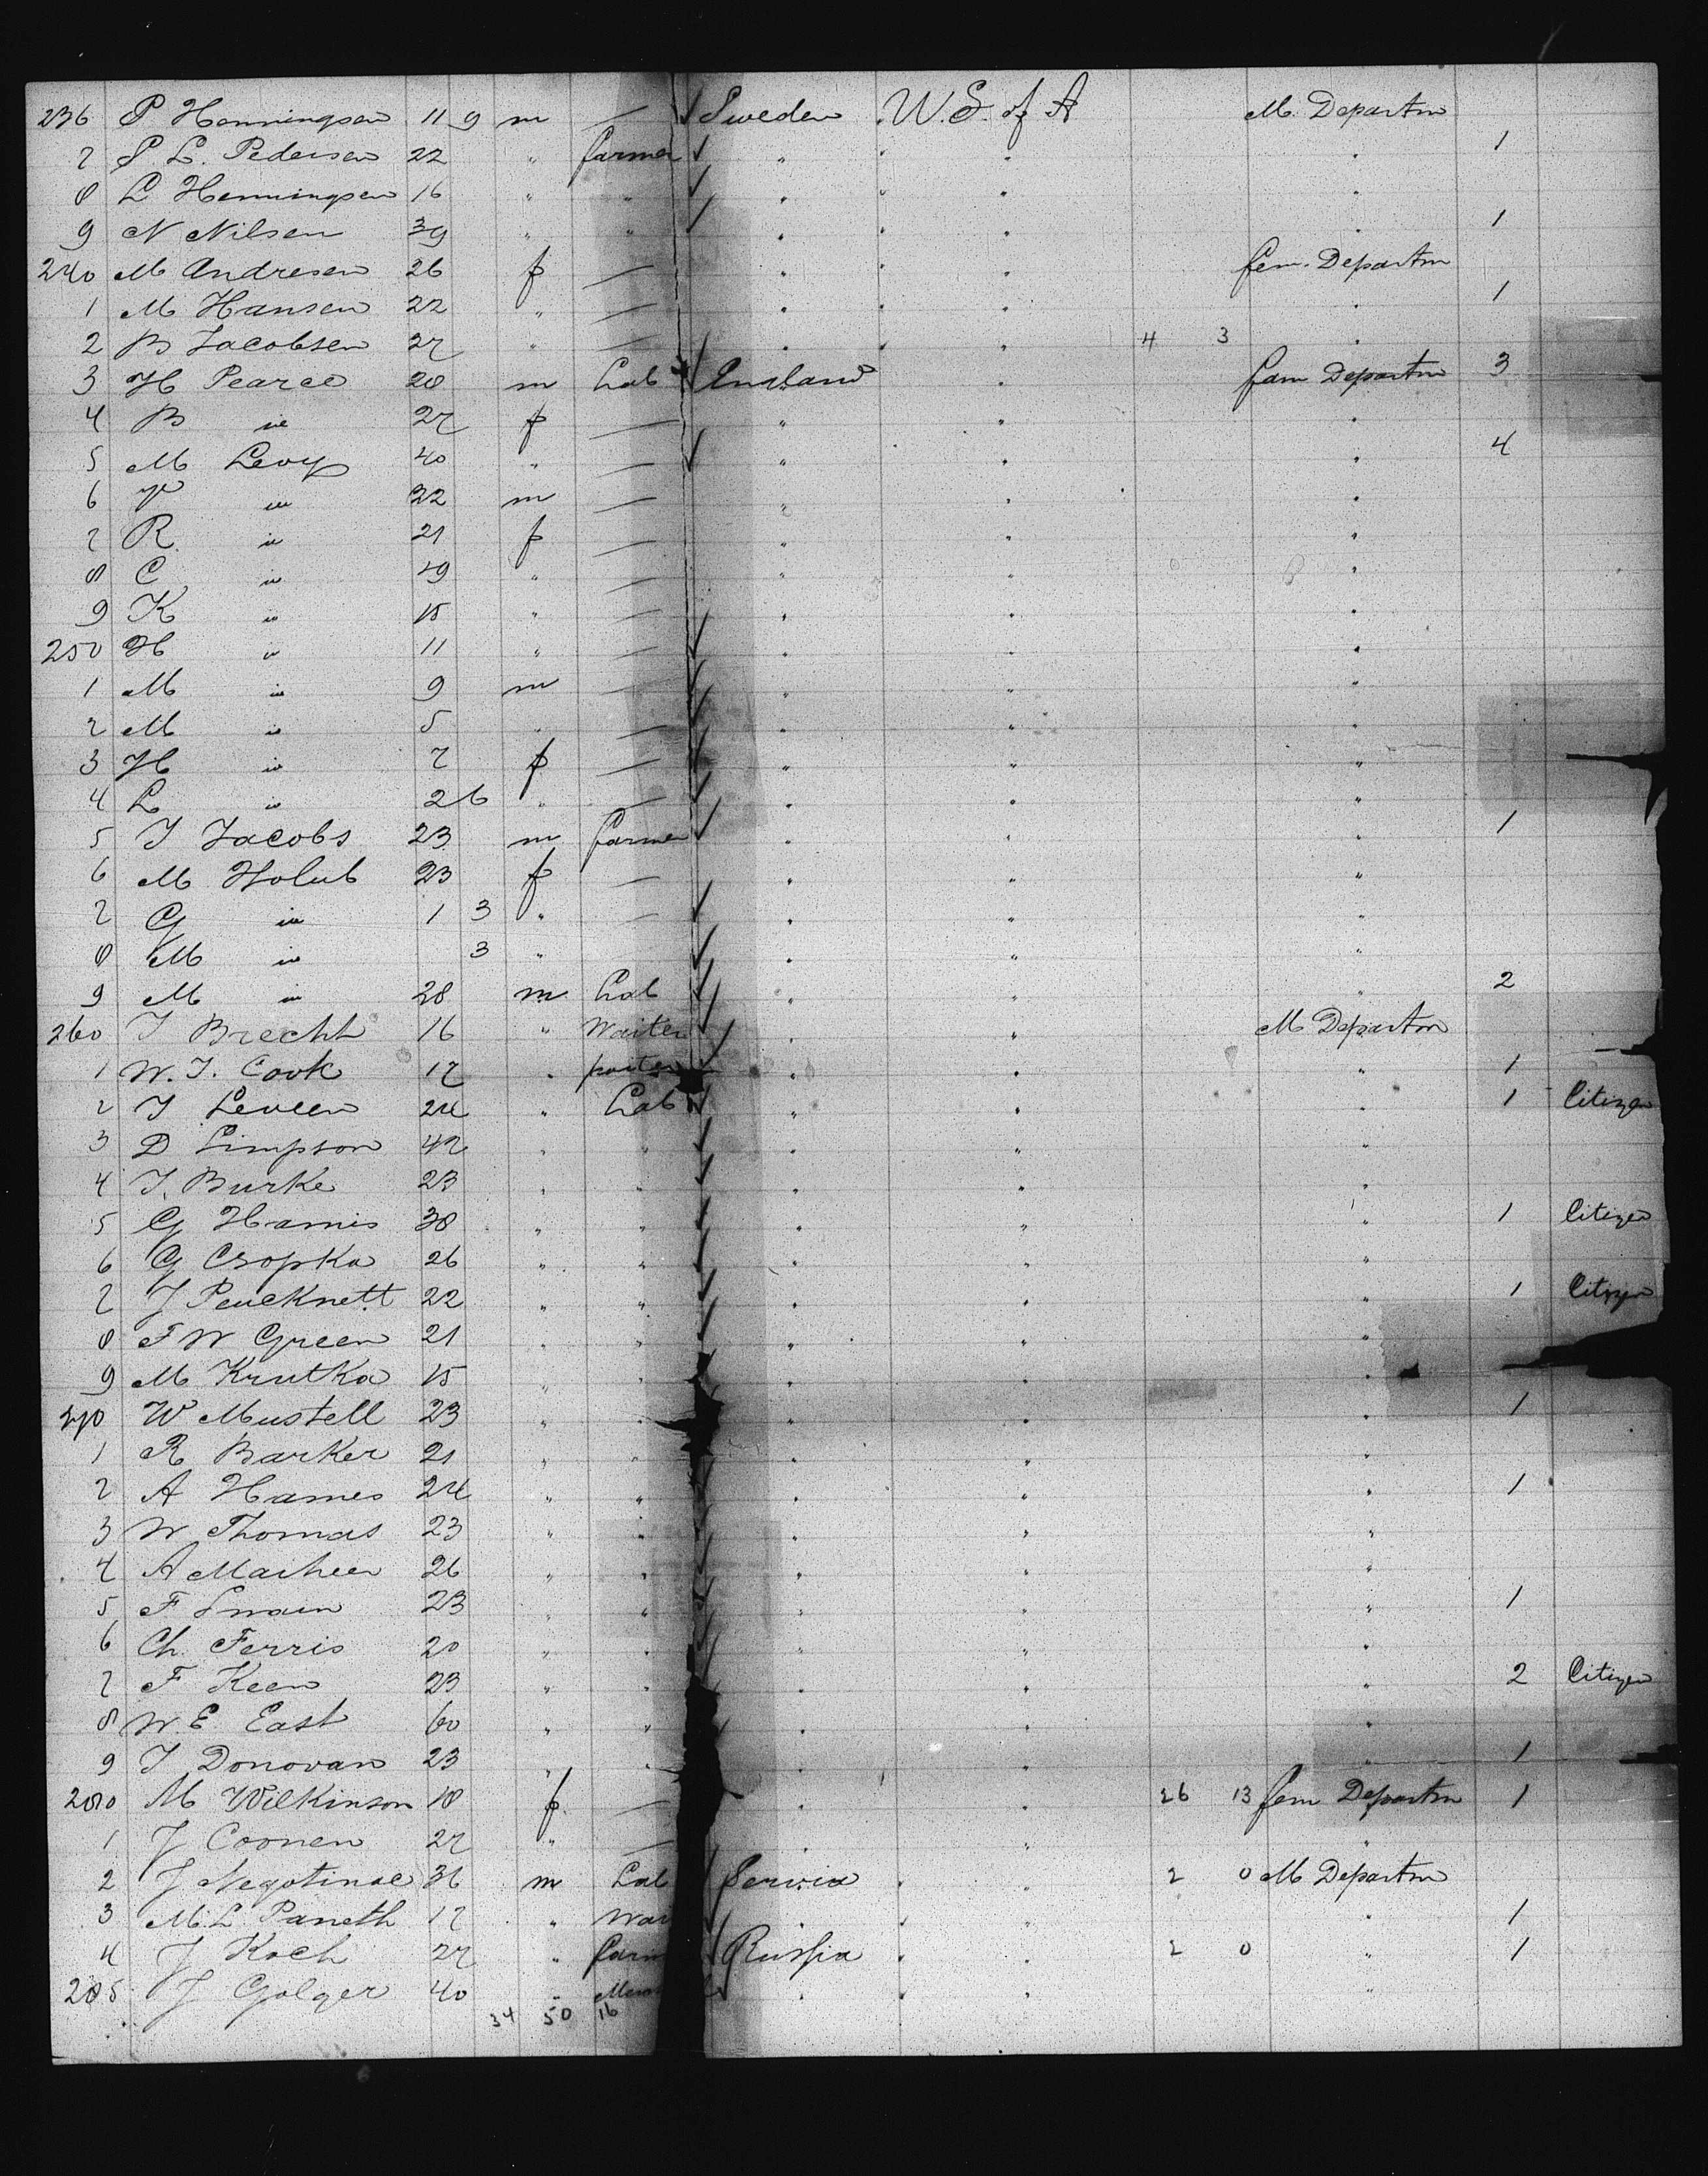 236 P Henningsen 11 9 m — Sweden U.S. of A M. Departm
7 P L. Pedersen 22 " farmer " " " 1
8 L Henningsen 16 " " " " "
9 N Nilsen 39 " " " " " 1
240 M Andresen 26 f — " " fem. Departm
1 M Hansen 22 " — " " " 1
2 B Jacobsen 27 " — " " 4 3 "
3 H Pearce 28 m Lab England " fam Departm 3
4 B " 27 f — " " "
5 M Levy 40 " — " " " 4
6 " 22 m — " " "
7 R " 21 f — " " "
8 C " 19 " — " " "
9 K " 15 " — " " "
250 H " 11 " — " " "
1 M " 9 m — " " "
2 M " 5 " — " " "
3 H " 7 f — " " "
4 L " 2 6 " — " " "
5 J Jacobs 23 m farmer " " " 1
6 M Holub 23 f — " " "
7 G " 1 3 " — " " "
8 M " 3 " " " "
9 M " 28 m Lab " " " 2
260 J Brecht 16 " Waiter " " M Departm
1 W. J. Cook 17 " porter " " " 1
2 J Leveen 24 " Lab " " " 1 Citizen
3 D Simpson 42 " " " " "
4 J. Burke 23 " " " " "
5 G Harris 38 " " " " " 1 Citizen
6 G Csopka 26 " " " " "
7 J Peucknett 22 " " " " " 1 Citizen
8 F W Green 21 " " " " "
9 M Krutka 15 " " " " "
270 W Mustell 23 " " " " " 1
1 R Barker 21 " " " " "
2 A Hames 24 " " " " " 1
3 W Thomas 23 " " " " "
4 A 26 " " " " "
5 F Swain 23 " " " " " 1
6 Ch. Ferris 20 " " " " "
7 F Keen 23 " " " " " 2 Citizen
8 W. E East 60 " " " " "
9 J Donovan 23 " " " " " 1
280 M Wilkinson 18 f — " " 26 13 fem Departm 1
1 J Coonen 27 " — " " "
2 J Negotinae 36 m Lab Servia " 2 0 M Departm
3 M. L Paneth 17 " " " " 1
4 J Koch 27 " farm Russia " 2 0 " 1
285 J Golger 40 " " "
34 50 16